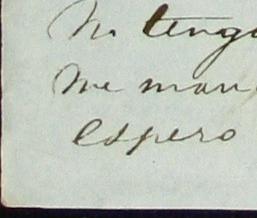 No teng
me man
espero